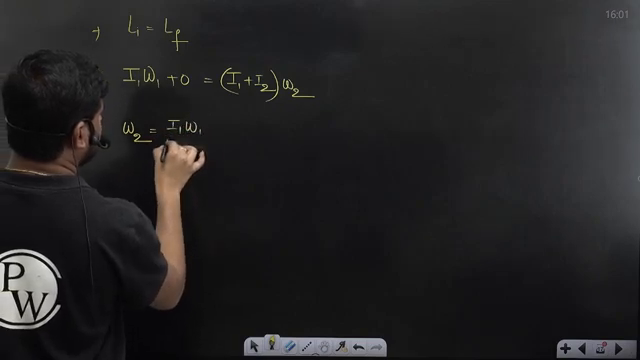 16:01
→ Lᵢ = L_f
I₁ω₁ + 0 = (I₁ + I₂) ω₂
ω₂ = I₁ω₁
PW